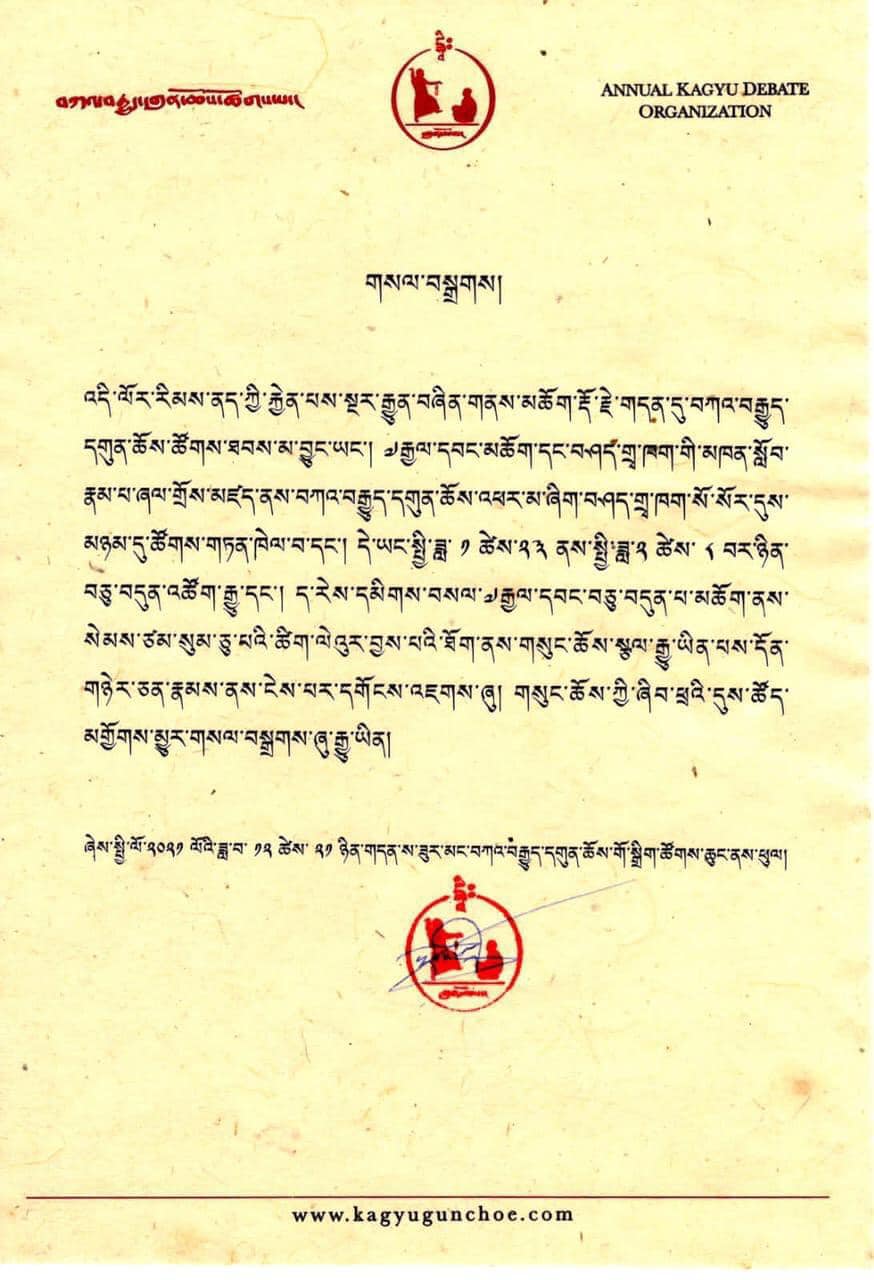 ANNUAL KAGYU DEBATE
ORGANIZATION
གསལ་བསྒྲགས།
འདི་ལོར་རིམས་ནད་ཀྱི་རྐྱེན་པས་སྔར་རྒྱུན་བཞིན་གནས་མཆོག་རྡོ་རྗེ་གདན་དུ་བཀའ་བརྒྱུད་
དགུན་ཆོས་ཚོགས་ཐབས་མ་བྱུང་ཡང་། ༧རྒྱལ་དབང་མཆོག་དང་བཤད་གྲྭ་ཁག་གི་མཁན་སློབ་
རྣམ་པ་ཞལ་གྲོས་མཛད་ནས་བཀའ་བརྒྱུད་དགུན་ཆོས་འཕར་མ་ཞིག་བཤད་གྲྭ་ཁག་སོ་སོར་དུས་
མཉམ་དུ་ཚོགས་གཏན་ཁེལ་བ་དང་། དེ་ཡང་སྤྱི་ཟླ་ ༡ ཚེས་༢༣ ནས་སྤྱི་ཟླ་༢ ཚེས་ ༨ བར་ཉིན་
བཅུ་བདུན་འཚོག་རྒྱུ་དང་། ད་རེས་དམིགས་བསལ་༧རྒྱལ་དབང་བཅུ་བདུན་པ་མཆོག་ནས་
སེམས་ཙམ་སུམ་ཅུ་པའི་ཚིག་ལེའུར་བྱས་པའི་ཐོག་ནས་གསུང་ཆོས་སྩལ་རྒྱུ་ཡིན་པས་དོན་
གཉེར་ཅན་རྣམས་ནས་ངེས་པར་དགོངས་འཇགས་ཞུ། གསུང་ཆོས་ཀྱི་ཞིབ་ཕྲའི་དུས་ཚོད་
མགྱོགས་མྱུར་གསལ་བསྒྲགས་ཞུ་རྒྱུ་ཡིན།
ཞེས་སྤྱི་ལོ་༢༠༢༡ ལོའི་ཟླ་བ་ ༡༢ ཚེས་ ༢༡ ཉིན་གདན་ས་ཟུར་མང་བཀའ་བརྒྱུད་དགུན་ཆོས་གོ་སྒྲིག་ཚོགས་ཆུང་ནས་ཕུལ།
www.kagyugunchoe.com